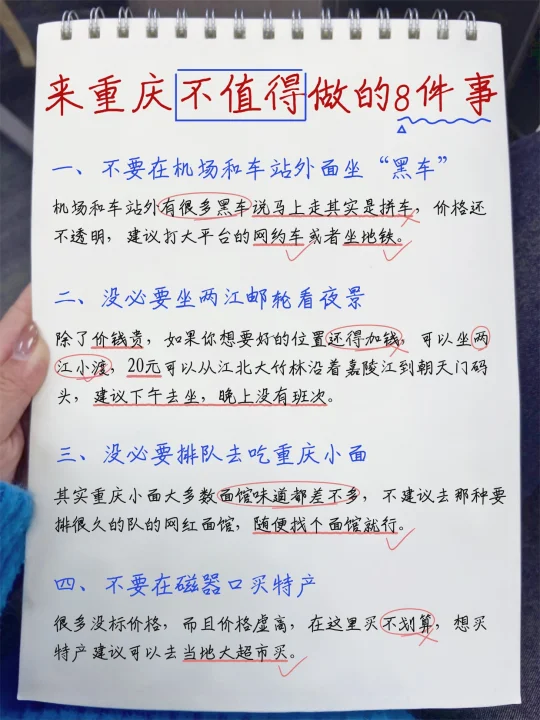 来重庆不值得做的8件事
一、不要在机场和车站外面坐“黑车”
机场和车站外有很多黑车说马上走其实是拼车，价格还
不透明，建议打大平台的网约车或者坐地铁。
二、没必要坐两江邮轮看夜景
除了价钱贵，如果你想要好的位置还得加钱，可以坐两
江小渡，20元可以从江北大竹林沿着嘉陵江到朝天门码
头，建议下午去坐，晚上没有班次。
三、没必要排队去吃重庆小面
其实重庆小面大多数面馆味道都差不多，不建议去那种要
排很久的队的网红面馆，随便找个面馆就行。
四、不要在磁器口买特产
很多没标价格，而且价格虚高，在这里买不划算，想买
特产建议可以去当地大超市买。